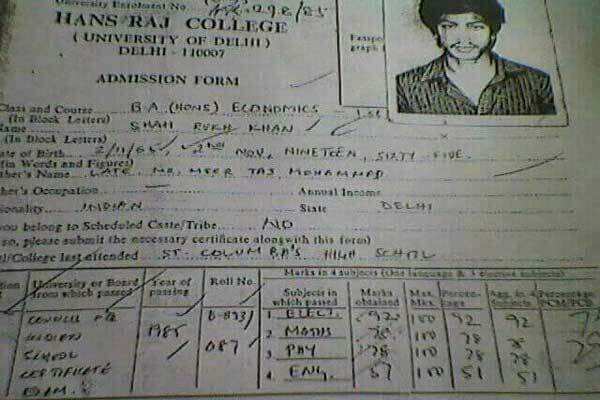 University Enrolment No. 298/85
HANS RAJ COLLEGE
(UNIVERSITY OF DELHI)
DELHI - 110007
ADMISSION FORM
Passpo
graph
Class and Course B.A (HONS) ECONOMICS
(In Block Letters)
Name SHAH RUKH KHAN
(In Block Letters)
ate of Birth 2/11/65, 2nd NOV, NINETEEN, SIXTY FIVE.
(in Words and Figures)
ther's Name LATE MR. MEER TAJ MOHAMMED
ther's Occupation — Annual Income
tionality INDIAN State DELHI
you belong to Scheduled Caste/Tribe NO
so, please submit the necessary certificate alongwith this form)
l/College last attended ST. COLUMBA'S HIGH SCHOOL
University or Board from which passed Year of passing Roll No. Marks in 4 subjects (One language & 3 elected subjects)
Subjects in which passed Marks obtained Max. Mks. Percentage Agg. in 4 Subjects Percentage
COUNCIL 1 ELECT. 92 100 92 92
INDIAN 1985 2 MATHS 78 100 78 78
SCHOOL 087 3 PHY 78 100 78 78
CERTIFICATE 4 ENG. 51 100 51 51
EXAM.